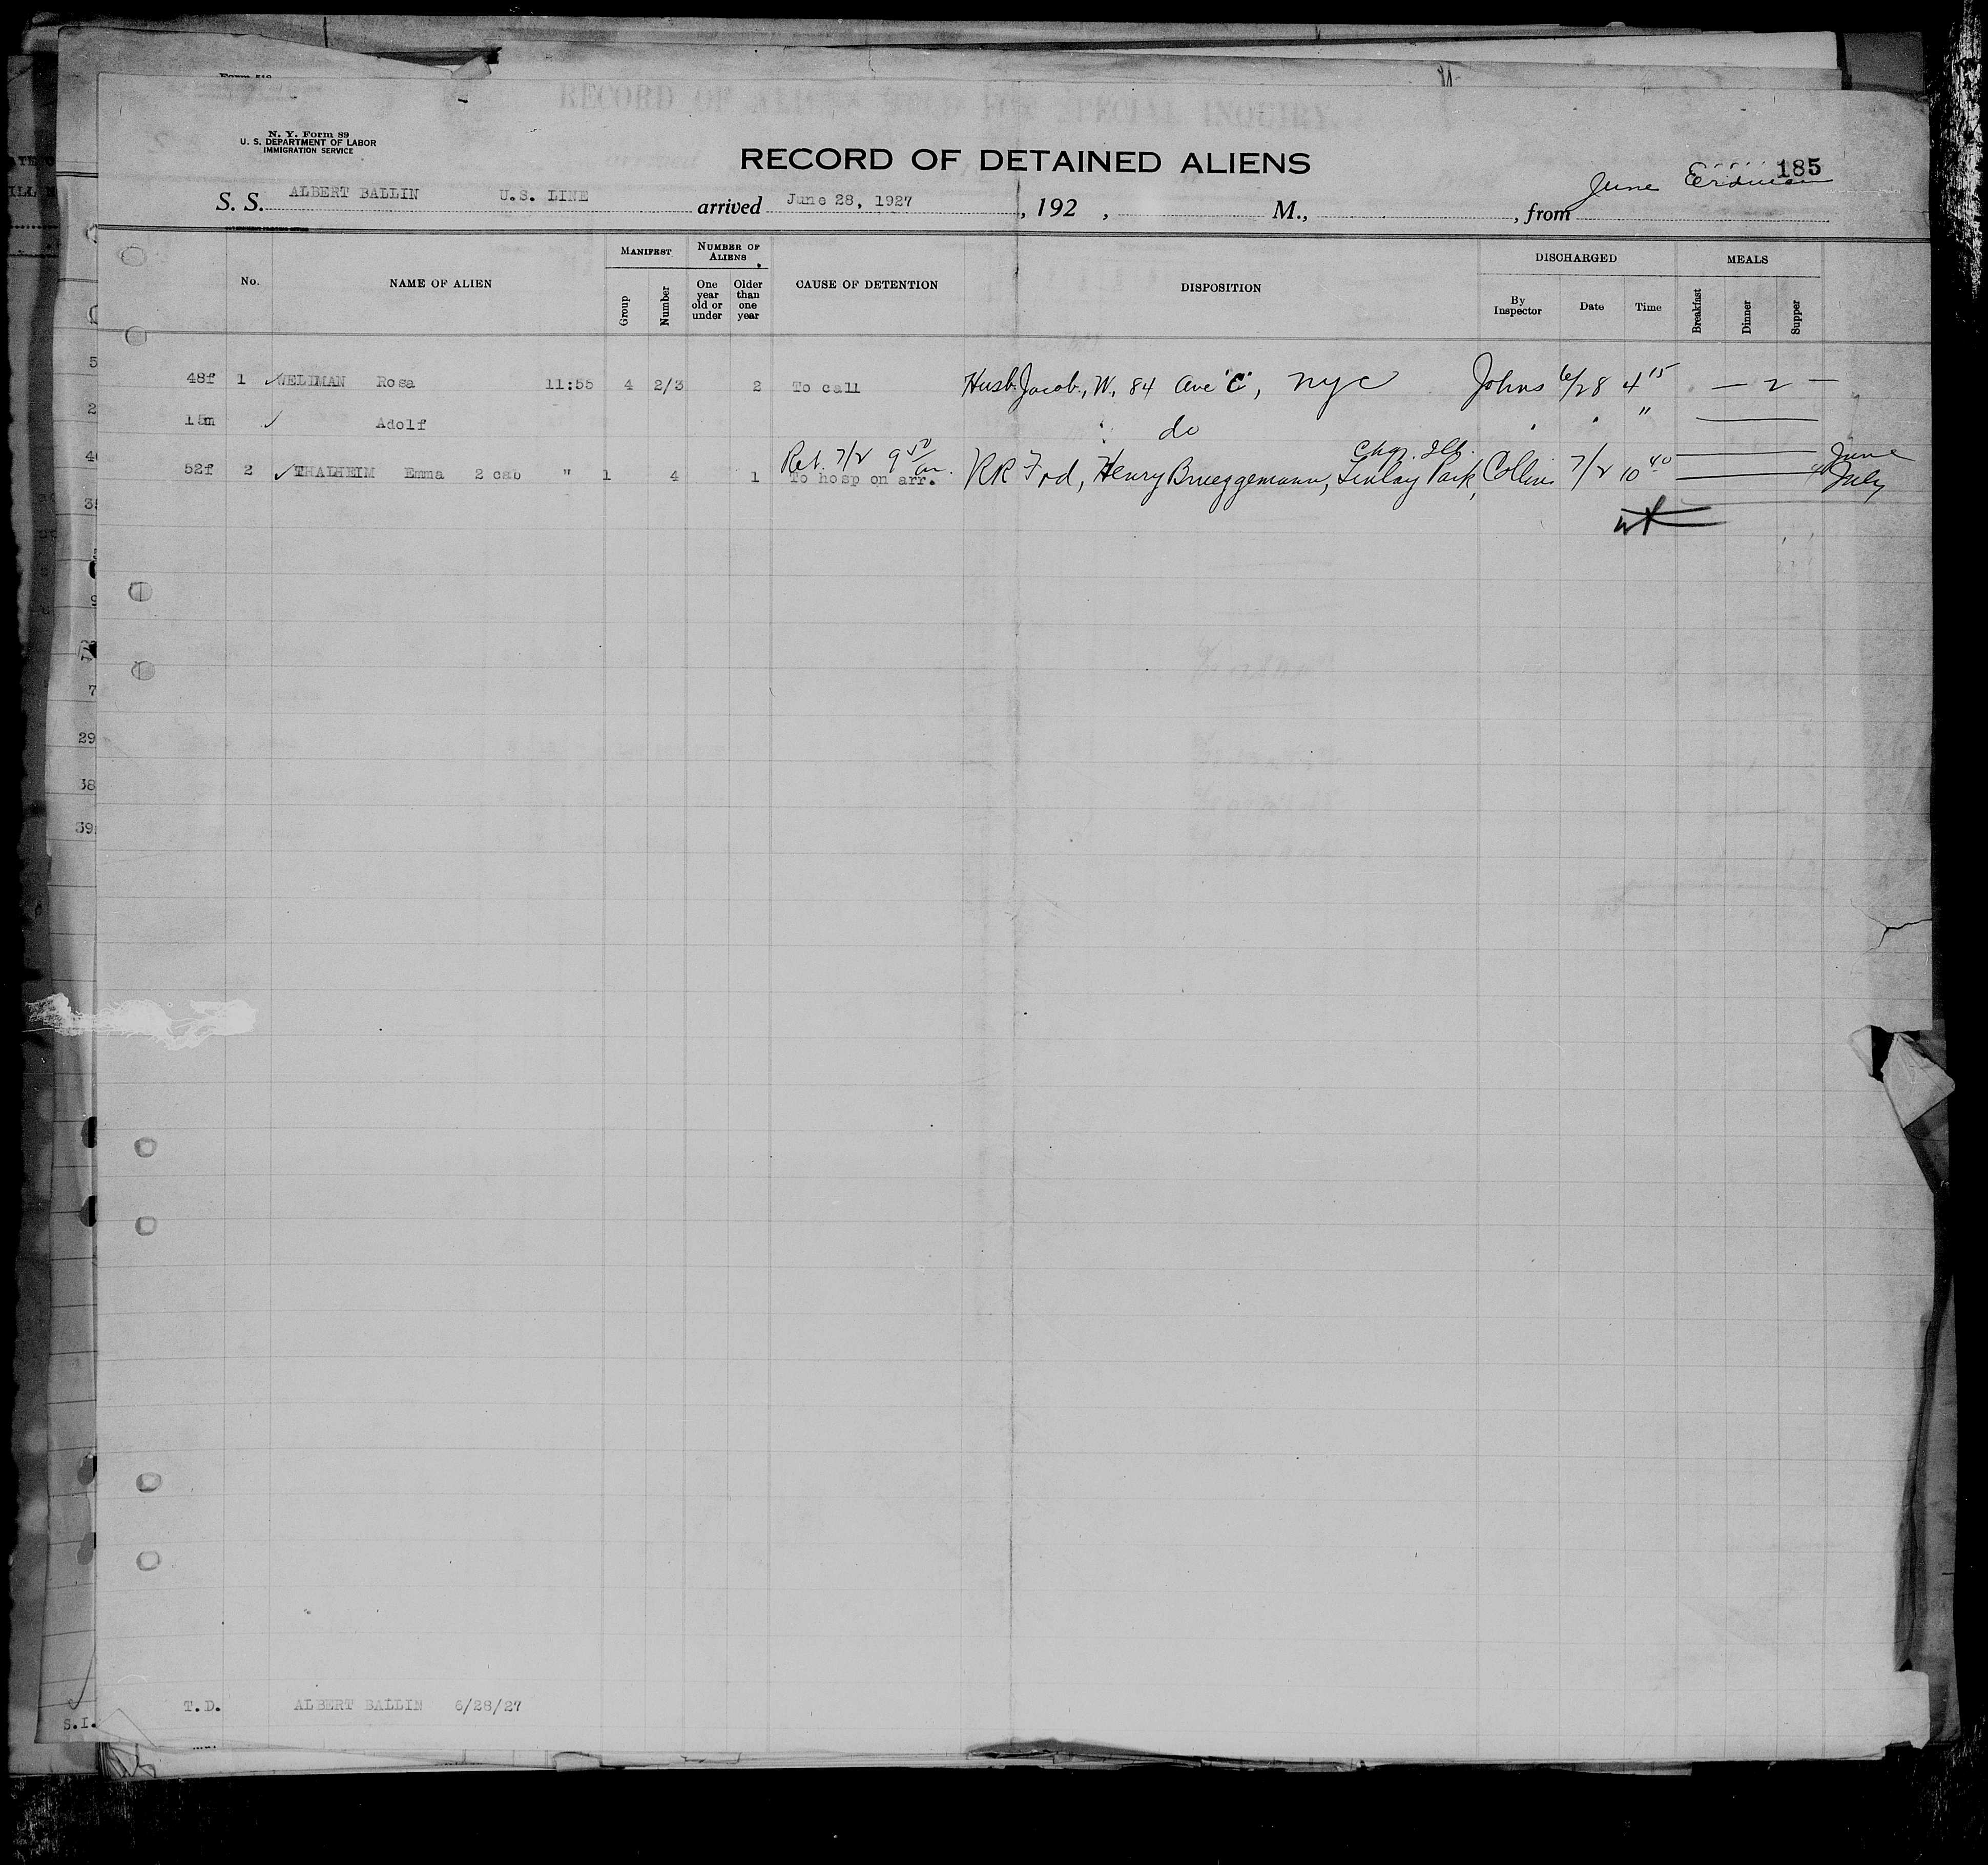 N. Y. Form 89
U. S. DEPARTMENT OF LABOR
IMMIGRATION SERVICE
RECORD OF ALIENS HELD FOR SPECIAL INQUIRY.
RECORD OF DETAINED ALIENS
185
June Erdman
S. S. ALBERT BALLIN U.S. LINE arrived June 28, 1927, 192 , M., , from
No. NAME OF ALIEN MANIFEST Group Number NUMBER OF ALIENS One year old or under Older than one year CAUSE OF DETENTION DISPOSITION DISCHARGED By Inspector Date Time MEALS Breakfast Dinner Supper
48f 1 WELTMAN Rosa 11:55 4 2/3 2 To call Husb. Jacob, W, 84 Ave "C", NYC Johns 6/28 4 15 — 2 —
15m Adolf do " 
Ret. 7/2 9 50 am. Chgo. Ill. June
52f 2 THALHEIM Emma 2 cab " 1 4 1 To hosp on arr. RR Frd, Henry Brueggemann, Tinley Park, Collins 7/2 10 40 July
T.D. ALBERT BALLIN 6/28/27
S.I.